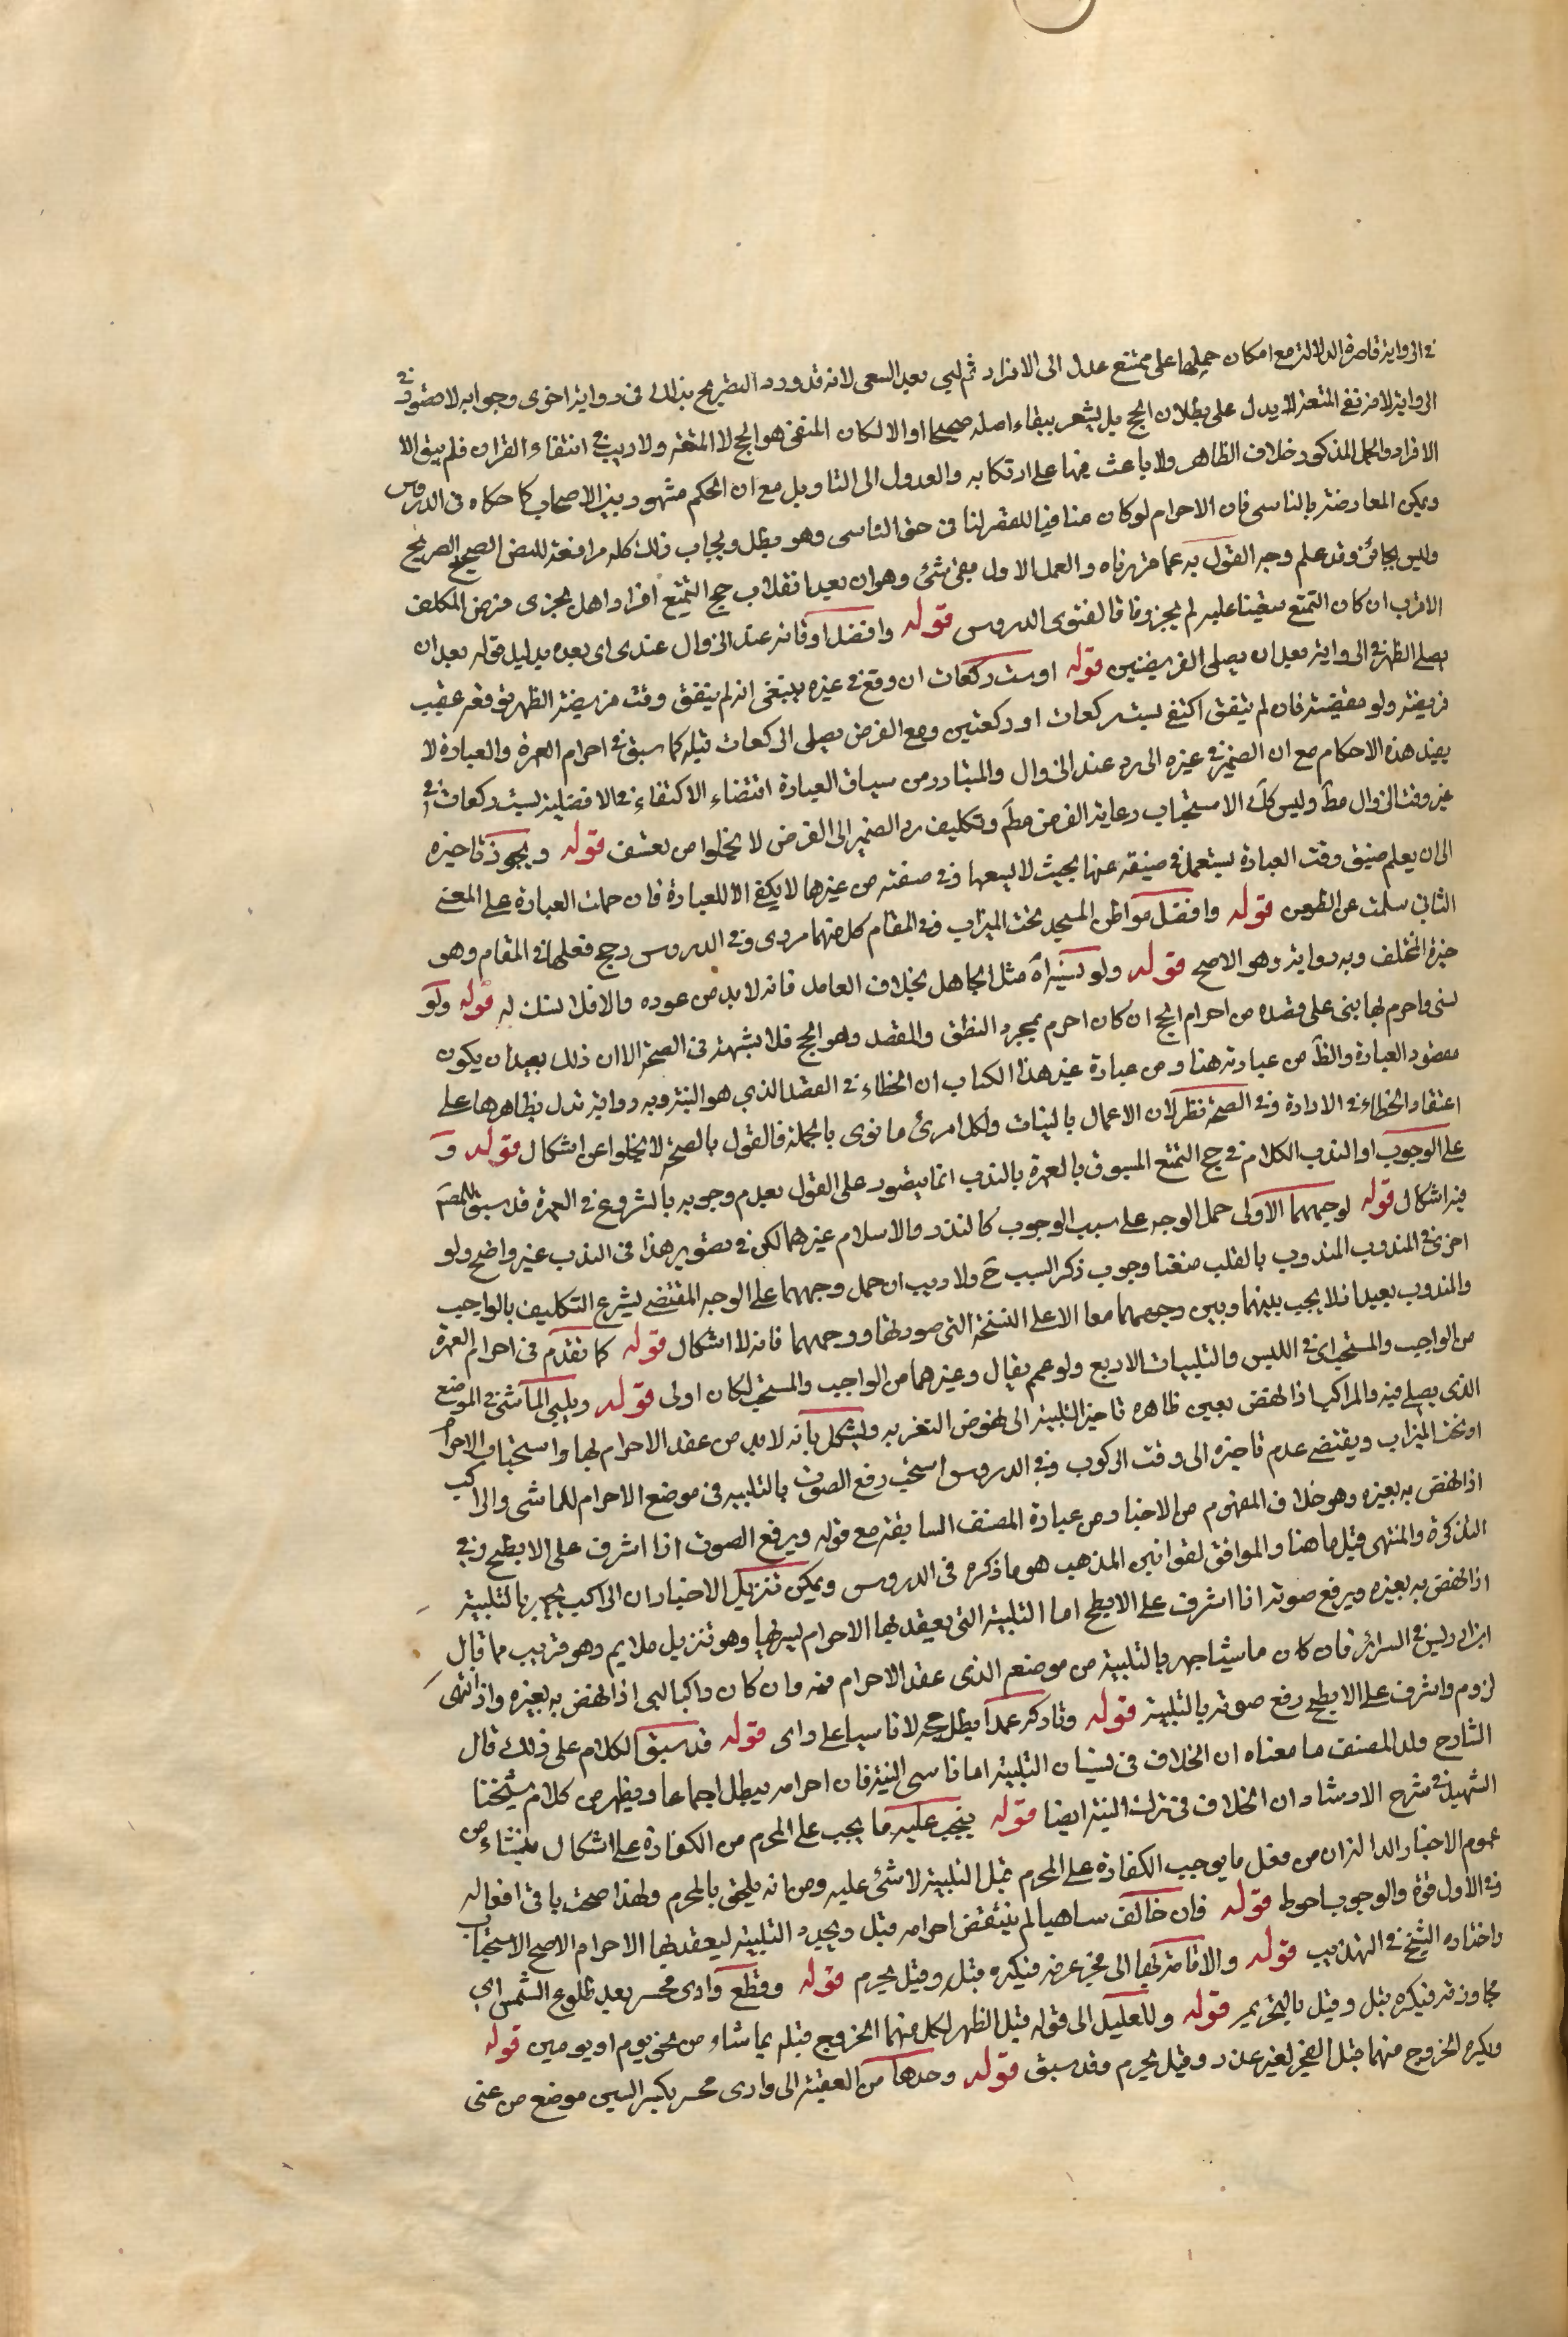 في الرواية قاصرة الدلالة مع امكان حملها على متمتع عدل الى الافراد ثم لبى بعد السعى لانه قد ورد التصريح بذلك في رواية اخرى وجوابه لا صتور في
الرواية لا من نفى المتعة لا يدل على بطلان الحج بل يشعر ببقاء اصله صحيحا والا لكان المنفى هو الحج لا المتعة ولا ريب في انتفاء القران فلم يبق الا
الافراد والحمل المذكور خلاف الظاهر ولا باعث منها على ارتكابه والعدول الى التاويل مع ان الحكم مشهور بين الاصحاب كما حكاه في الدروس
ويمكن المعارضة بالناسى فان الاحرام لو كان منافيا للتقصير لنا في حق الناسى وهو مبطل ويجاب ذلك كله مرافعة للنص الصحيح الصريح
وليس بجائز وقد علم وجه القول به عما حررناه والعمل الاول بقى شئ وهو ان بعد انقلاب حج التمتع افرادا هل يجزى من فرض المكلف
الاقرب ان كان التمتع متعينا عليه لم يجز وفاقا لفتوى الدروس قوله وافضل اوقاته عند الزوال عندى اى بعده بدليل قوله بعد ان
يصلى الظهر في الرواية بعد ان يصلى الفريضتين قوله او ست ركعات ان وقع في غيره ينبغى انه لم يتفق وقت فريضة الظهر يوقعه عقيب
فريضة ولو مقضية فان لم يتفق اكتفى بست ركعات او ركعتين ومع الفرض يصلى الركعات قبله كما سبق في احرام العمرة والعبادة لا
يفيد هذه الاحكام مع ان الضمير في غيره الى رد عند الزوال والمتبادر من سياق العبارة اقتضاء الاكتفاء في الافضلية بست ركعات في
غير وقت الزوال مط وليس كل الاستحباب رعاية الفرض مطم وتكليف رد الضمير الى الفرض لا يخلوا من تعسف قوله ويجوز تاخيره
الى ان يعلم ضيق وقت العبارة يستعمل في ضيقه عنها بحيث لا يسعها وفي صفته من غيرهما لا يكفى الا للعبادة فان حملت العبارة على المعنى
الثانى سلمت عن الطعن قوله وافضل مواطن المسجد تحت الميزاب وفي المقام كل منهما مروى وفي الدروس رجح فعلها في المقام وهو
خيرة المختلف وبه رواية وهو الاصح قوله ولو نسى اه مثل الجاهل بخلاف العامد فانه لا بد من عوده والا فلا نسك له قوله ولو
نسى واحرم بها بنى على قصده من احرام الحج ان كان احرم بمجرد النطق والقصد وهو الحج فلا شبهة في الصحة الا ان ذلك بعيد ان يكون
مقصود العبارة والظ من عبارته هنا ومن عبارة غير هذا الكتاب ان الخطاء في القصد الذي هو النية وبه رواية تدل بظاهرها على
اعتقاد الخطاء في الارادة وفي الصحة نظر لان الاعمال بالنيات ولكل امرئ ما نوى بالجملة فالقول بالصحة لا يخلوا عن اشكال قوله و
على الوجوب او الندب الكلام في حج التمتع المسبوق بالعمرة بالندب انما يتصور على القول بعدم وجوبه بالشروع في العمرة قد سبق للمصَ
فيه اشكال قوله لوجههما الاولى حمل الوجه على سبب الوجوب كالنذر والاسلام غيرهما لكن في تصوير هذا في الندب غير واضح ولو
اخرى في المندوب المندوب بالقلب منعنا وجوب ذكر السبب ح ولا ريب ان حمل وجههما على الوجه المقتضى لشرع التكليف بالواجب
والمندوب بعيد اذ لا يجب بينهما وبين وجههما معا الا على النسخة التى صورتها ووجههما فانه لا اشكال قوله كما تقدم في احرام العمرة
من الواجب والمستحب اى في اللبس والتلبيات الاربع ولو عمم يقال وغيرهما من الواجب والمستحب لكان اولى قوله ويلبى الماشى في الموضع
الذى يصلى فيه والراكب اذا نهض بعيره ظاهره تاخير التلبية الى نهوض التعزيه ويشكل بانه لا بد من عقد الاحرام بها واستحباب الاحرام
او تحت الميزاب ويقتضى عدم تاخيره الى وقت الركوب وفي الدروس استحب رفع الصوت بالتلبية في موضع الاحرام للماشى والراكب
اذا نهض به بعيره وهو خلاف المفهوم من الاخبار ومن عبارة المصنف السابقة مع قوله ويرفع الصوت اذا اشرف على الابطح وفي
التذكرة والمنتهى قبل ما هنا والموافق لقوانين المذهب هو ما ذكره في الدروس ويمكن تنزيل الاخبار ان الراكب يجهر بالتلبية
اذا نهض به بعيره ويرفع صوته اذا اشرف على الابطح اما التلبية التى يعقد بها الاحرام ليسر بها وهو تنزيل ملايم وهو قريب مما قال
ابن ادريس في السرائر فان كان ماشيا جهر بالتلبية من موضعه الذى عقد الاحرام فيه وان كان راكبا لبى اذا نهض به بعيره واذا انتهى
لزوم واشرف على الابطح رفع صوته بالتلبية قوله وتاركه عمدا يبطل حجه لا ناسيا على راى قوله قد سبق الكلام على ذلك قال
الشارح ولد المصنف ما معناه ان الخلاف في نسيان التلبية اما ناسى النية فان احرامه يبطل اجماعا ويظهر من كلام شيخنا
الشهيد في شرح الارشاد ان الخلاف في ترك النية ايضا قوله يجب عليه ما يجب على المحرم من الكفارة على اشكال منشاء من
عموم الاخبار الدالة ان من فعل ما يوجب الكفارة على المحرم قبل التلبية لا شئ عليه ومن انه ملحق بالمحرم ولهذا صحت باقى افعاله
وفي الاول قوة والوجوب احوط قوله فان خالف ساهيا لم ينتقض احرامه قبل ويجدد التلبية ليعقد بها الاحرام الاصح الاستحباب
واختاره الشيخ في التهذيب قوله والافاضة بها الى فجر عرفة فيكره قبله وقيل يحرم قوله وقطع وادى محسر بعد طلوع الشمس اى
مجاوزته فيكره قبل وقيل بالتحريم قوله وللعليل الى قوله قبل الظهر لكل منهما الخروج قبله بما شاء من نحو يوم او يومين قوله
ويكره الخروج منهما قبل الفجر لغير عذر وقيل يحرم وقد سبق قوله وحدها من العقبة الى وادى محسر بكسر السين موضع من عنى